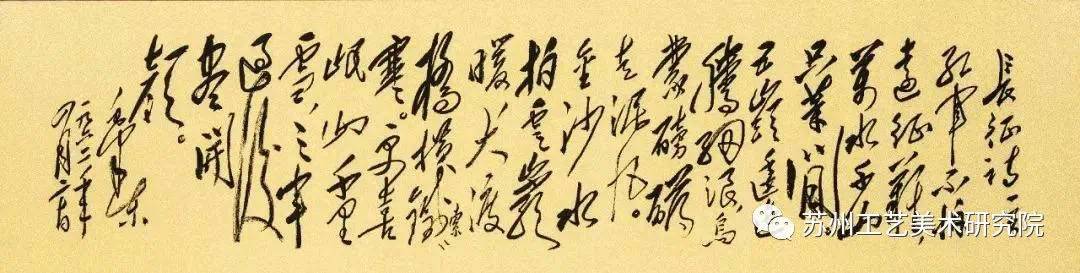 長征詩一首
红軍不怕
遠征難
萬水千山
只等闲
五嶺逶迤
腾细浪烏
蒙磅礴
走泥丸。
金沙水
拍雲崖
暖大渡
橋横鐵索
寒。更喜
岷山千里
雪,三军
過後
尽開
顏。
毛泽东
一九六二年
四月廿日
苏州工艺美术研究院